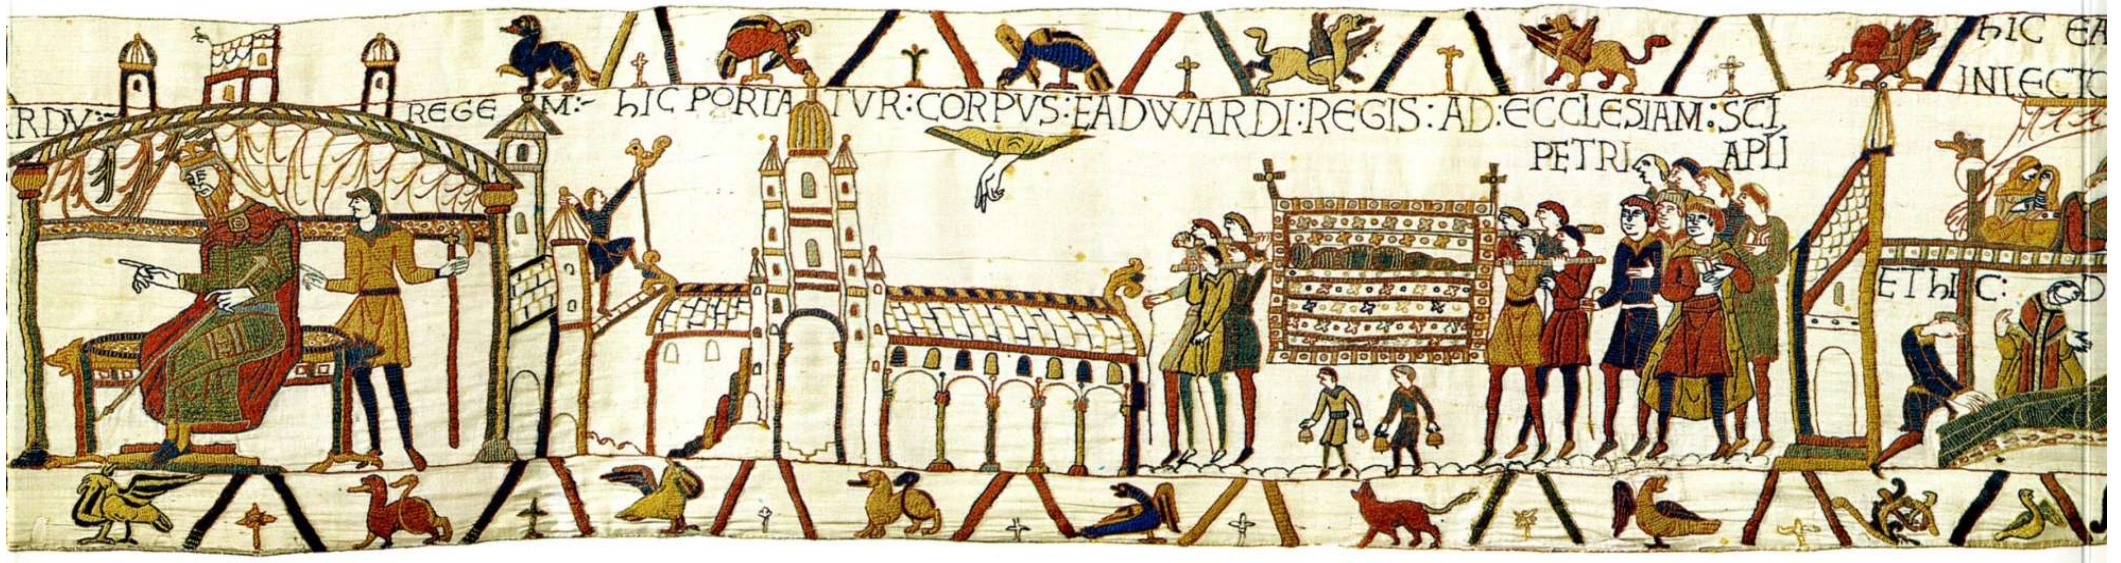 RDV:~ REGEM:~ hIC PORTATVR:CORPVS:EADWARDI:REGIS:AD:ECCLESIAM:SCI
PETRI APLI
hIC EA
INLECTO
EThIC: D